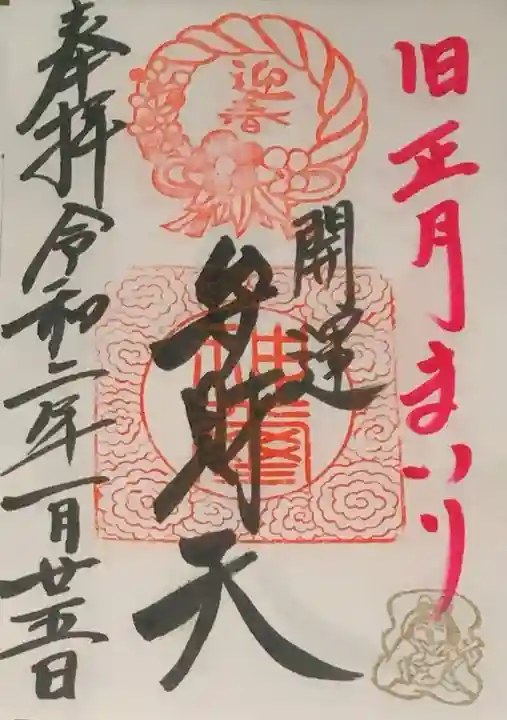 旧正月まいり
開運
弁財天
奉拝
令和二年一月廿五日
迎春